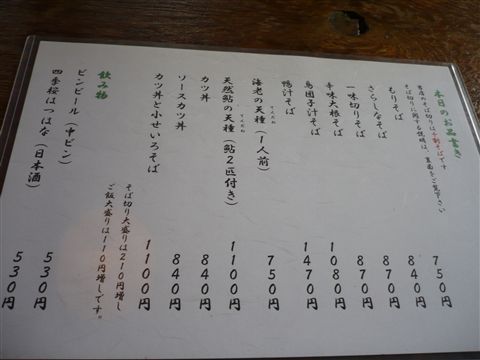 本日のお品書き
当店のそば切りは十割そばです
そば切りに関する説明は、裏面をご覧下さい
もりそば 750円
さらしなそば 840円
一味切りそば 870円
辛味大根そば 870円
鳥団子汁そば 1080円
鴨汁そば 1470円
海老の天種(1人前) 750円
てんだね
天然鮎の天種(鮎2匹付き) 1100円
てんだね
カツ丼 840円
ソースカツ丼 840円
カツ丼と小せいろそば 1100円
そば切り大盛りは210円増し
ご飯大盛りは110円増しです。
飲み物
ビンビール(中ビン) 530円
四季桜はつはな(日本酒) 530円